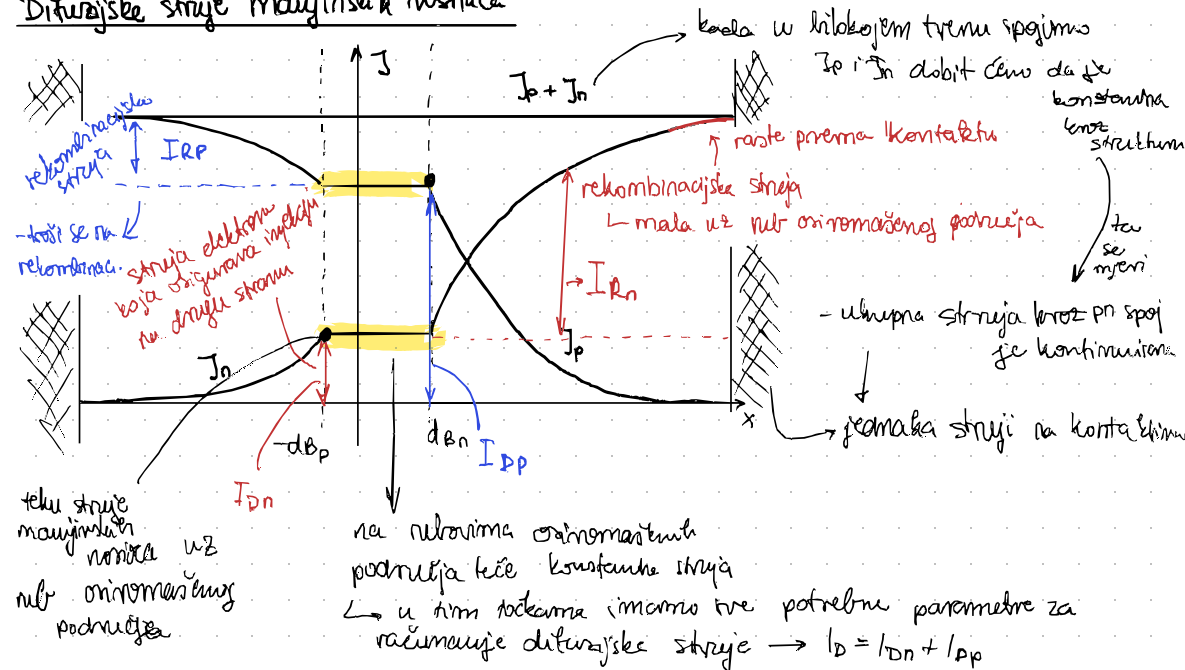 Difuzijske struje manjinskih nosilaca
J
Jp + Jn
kada u bilokojem trenu spojimo
Jp i Jn dobit ćemo da je
konstantna
kroz
strukturu
rekombinacijska
struja
IRp
-troši se na
rekombinac.
struja elektrona
koja osigurava injekciju
na drugu stranu
raste prema kontaktu
rekombinacijska struja
mala uz rub osiromašenog područja
IRn
ta
se
mjeri
- ukupna struja kroz pn spoj
je kontinuirana
jednaka struji na kontaktima
Jn
Jp
x
-dBp
dBn
IDp
IDn
teku struje
manjinskih
nosioca uz
rub osiromašenog
područja
na rubovima osiromašenih
područja teče konstantna struja
u tim točkama imamo sve potrebne parametre za
računanje difuzijske struje → ID = IDn + IDp